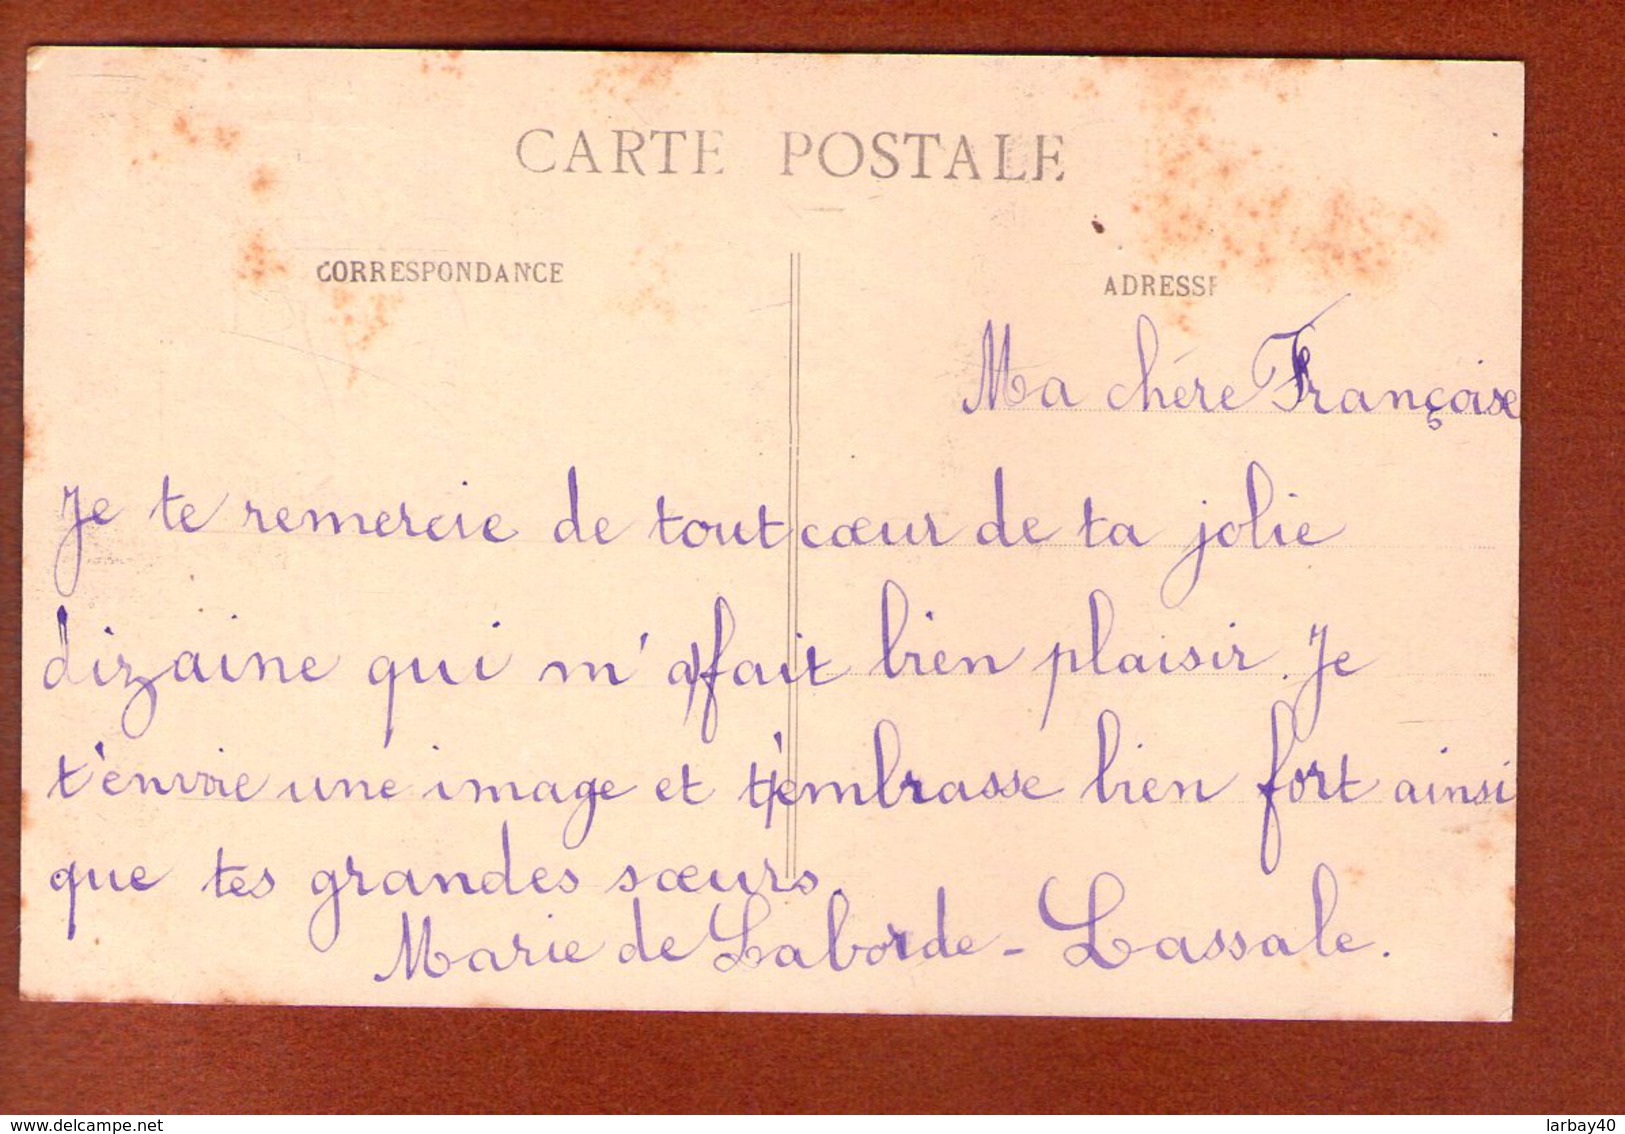 CARTE POSTALE
CORRESPONDANCE
ADRESSE
Ma chére Françoise
Je te remercie de tout cœur de ta jolie
dizaine qui m'a fait bien plaisir. Je
t'envoie une image et t'embrasse bien fort ainsi
que tes grandes sœurs.
Marie de Laborde-Lassale.
delcampe.net
larbay40